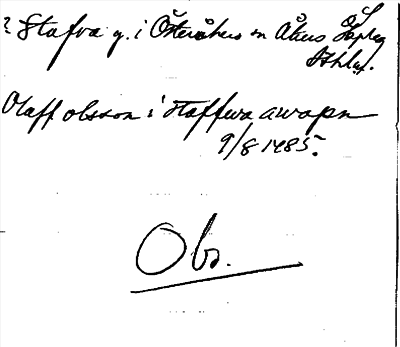 ? Stafva g. i Österåkers sn Åkers Skplg
Sthlm.
Olaff olsson i staffwa awapn
9/8 1485.
Obs.